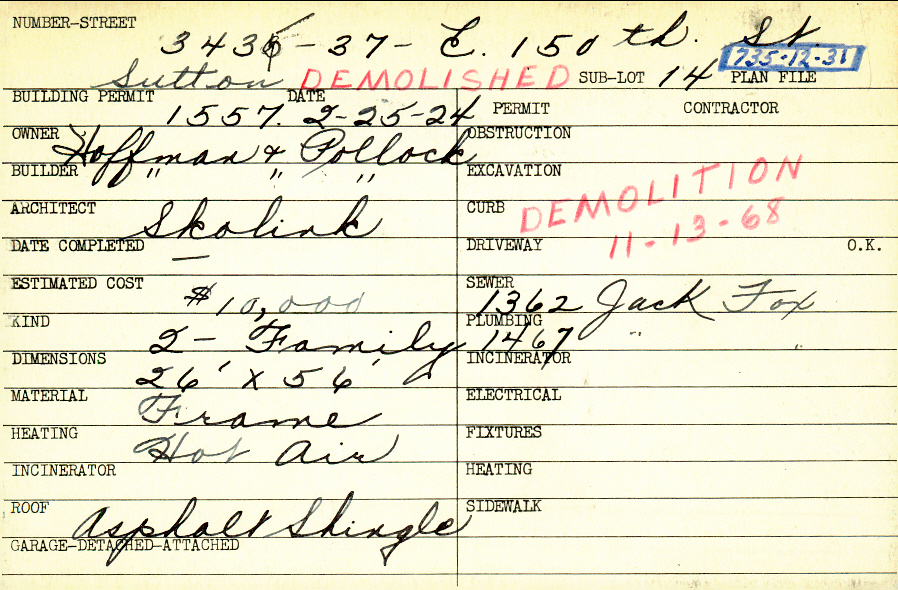 NUMBER-STREET 3435-37- E. 150 th. St.
735-12-31
Sutton DEMOLISHED SUB-LOT 14 PLAN FILE
BUILDING PERMIT 1557. DATE 2-25-24
OWNER Hoffman & Pollock
BUILDER " " "
ARCHITECT Skolink
DATE COMPLETED —
ESTIMATED COST $10,000
KIND 2- Family
DIMENSIONS 26' X 56'
MATERIAL Frame
HEATING Hot Air
INCINERATOR
ROOF Asphalt Shingle
GARAGE-DETACHED-ATTACHED
PERMIT CONTRACTOR
OBSTRUCTION
EXCAVATION
DEMOLITION
CURB
11-13-68
DRIVEWAY O.K.
SEWER 1362 Jack Fox
PLUMBING 1467 " "
INCINERATOR
ELECTRICAL
FIXTURES
HEATING
SIDEWALK